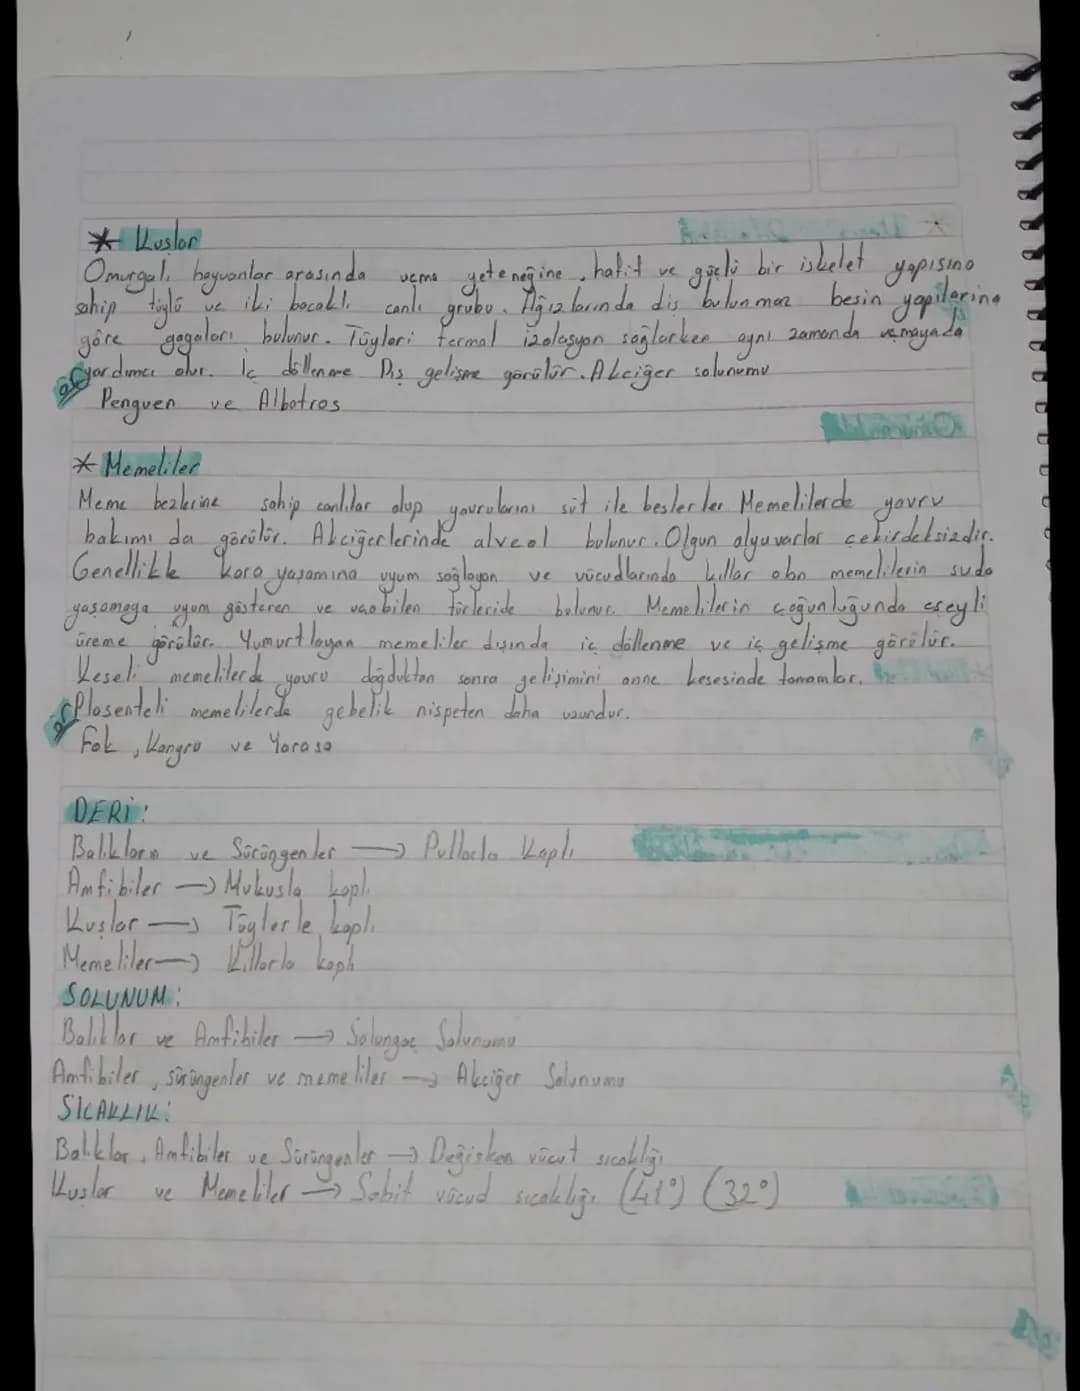 * Kuşlar
Omurgalı hayvanlar arasında uçma yeteneğine, hafif ve güçlü bir iskelet yapısına
sahip tüylü ve iki bacaklı canlı grubu. Ağızlarında diş bulunmaz besin yapılarına
göre gagaları bulunur. Tüyleri termal izolasyon sağlarken aynı zamanda uçmaya da
yardımcı olur. İç döllenme Dış gelişme görülür. Akciğer solunumu
ör Penguen ve Albatros
* Memeliler
Meme bezlerine sahip canlılar olup yavrularını süt ile beslerler Memelilerde yavru
bakımı da görülür. Akciğerlerinde alveol bulunur. Olgun alyuvarlar çekirdeksizdir.
Genellikle kara yaşamına uyum sağlayan ve vücudlarında kıllar olan memelilerin suda
yaşamaya uyum gösteren ve uçabilen türleride bulunur. Memelilerin çoğunluğunda eşeyli
üreme görülür. Yumurtlayan memeliler dışında iç döllenme ve iç gelişme görülür.
Keseli memelilerde yavru doğduktan sonra gelişimini anne kesesinde tamamlar.
Plasenteli memelilerde gebelik nispeten daha uzundur.
ör Fok, Kangro ve Yarasa
DERİ:
ve Sürüngenler → Pullarla Kaplı
Amfibiler → Mukusla kaplı
Kuşlar → Tüylerle kaplı
Memeliler → Kıllarla kaplı
SOLUNUM:
Balıklar ve Amfibiler → Solungaç Solunumu
Amfibiler, sürüngenler ve memeliler → Akciğer Solunumu
SICAKLIK:
Balıklar, Amfibiler ve Sürüngenler → Değişken vücut sıcaklığı
Kuşlar ve Memeliler → Sabit vücud sıcaklığı (41°) (32°)